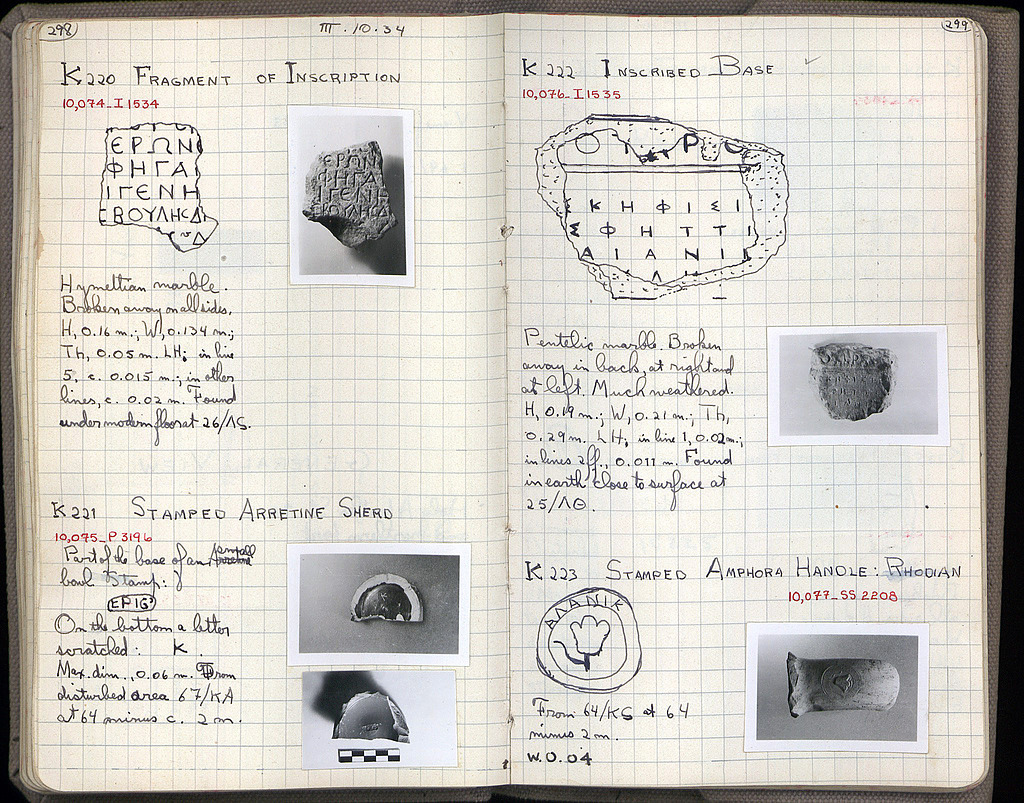 298
III.10.34
K 220 FRAGMENT OF INSCRIPTION
10,074-I 1534
ΕΡΩΝ
ΦΗΓΑ
ΙΓΕΝΗ
ΒΟΥΛΗΣΔ
Hymettian marble.
Broken away on all sides.
H, 0.16 m.; W, 0.134 m;
Th, 0.05 m. LH; in line
5, c. 0.015 m; in other
lines, c. 0.02 m. Found
under modern floor at 26/ΛΣ.
K 221 STAMPED ARRETINE SHERD
10,075-P 3196
Part of the base of an small
bowl Stamp:
On the bottom a letter
scratched: K.
Max. dim., 0.06 m. From
disturbed area 67/KA
at 64 minus c. 2 m.
299
K 222 INSCRIBED BASE
10,076-I 1535
Ο Ι Ρ
Κ Η Φ Ι Σ Ι
Σ Φ Η Τ Τ Ι
Α Ι Α Ν Ι
Pentelic marble. Broken
away in back, at right and
at left. Much weathered.
H, 0.19 m.; W, 0.21 m.; Th,
0.29 m. LH; in line 1, 0.02 m.;
in lines 2 ff., 0.011 m. Found
in earth close to surface at
25/ΛΘ.
K 223 STAMPED AMPHORA HANDLE: RHODIAN
10,077-SS 2208
ΑΛΑΝΙΚ
From 64/KS at 64
minus 2 m.
W.O.04